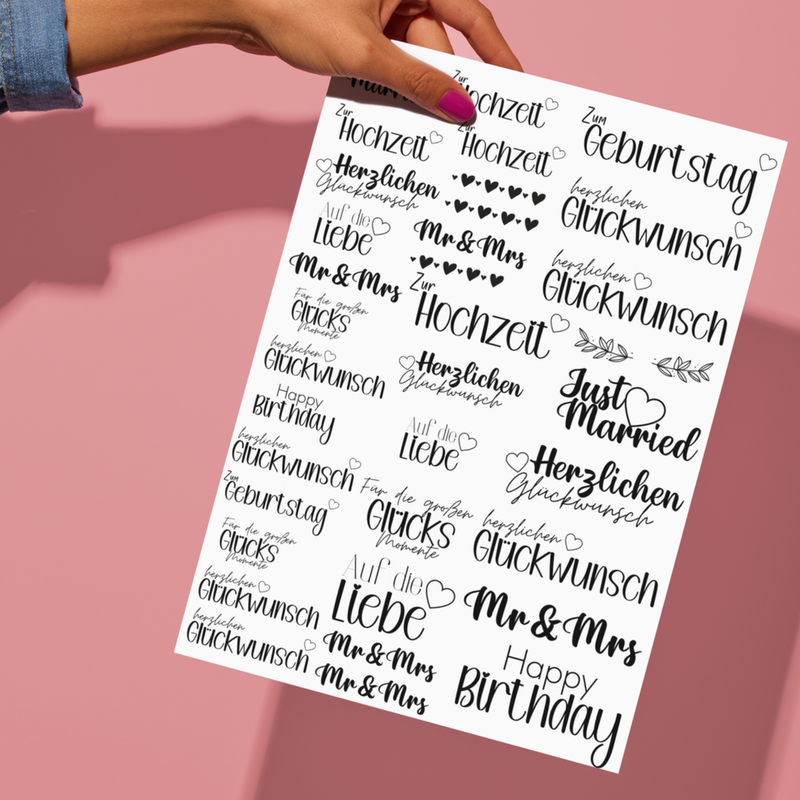 Married
Zur
Hochzeit
Zur
Hochzeit
Herzlichen
Glückwunsch
Auf die
Liebe
Mr & Mrs
Für die großen
Glücks
Momente
herzlichen
Glückwunsch
Happy
Birthday
herzlichen
Glückwunsch
Zum
Geburtstag
Für die großen
Glücks
Momente
herzlichen
Glückwunsch
herzlichen
Glückwunsch
Zur
Hochzeit
Mr & Mrs
Zur
Hochzeit
Herzlichen
Glückwunsch
Auf die
Liebe
Für die großen
Glücks
Momente
Auf die
Liebe
Mr & Mrs
Mr & Mrs
Zum
Geburtstag
herzlichen
Glückwunsch
herzlichen
Glückwunsch
Just
Married
Herzlichen
Glückwunsch
herzlichen
Glückwunsch
Mr & Mrs
Happy
Birthday